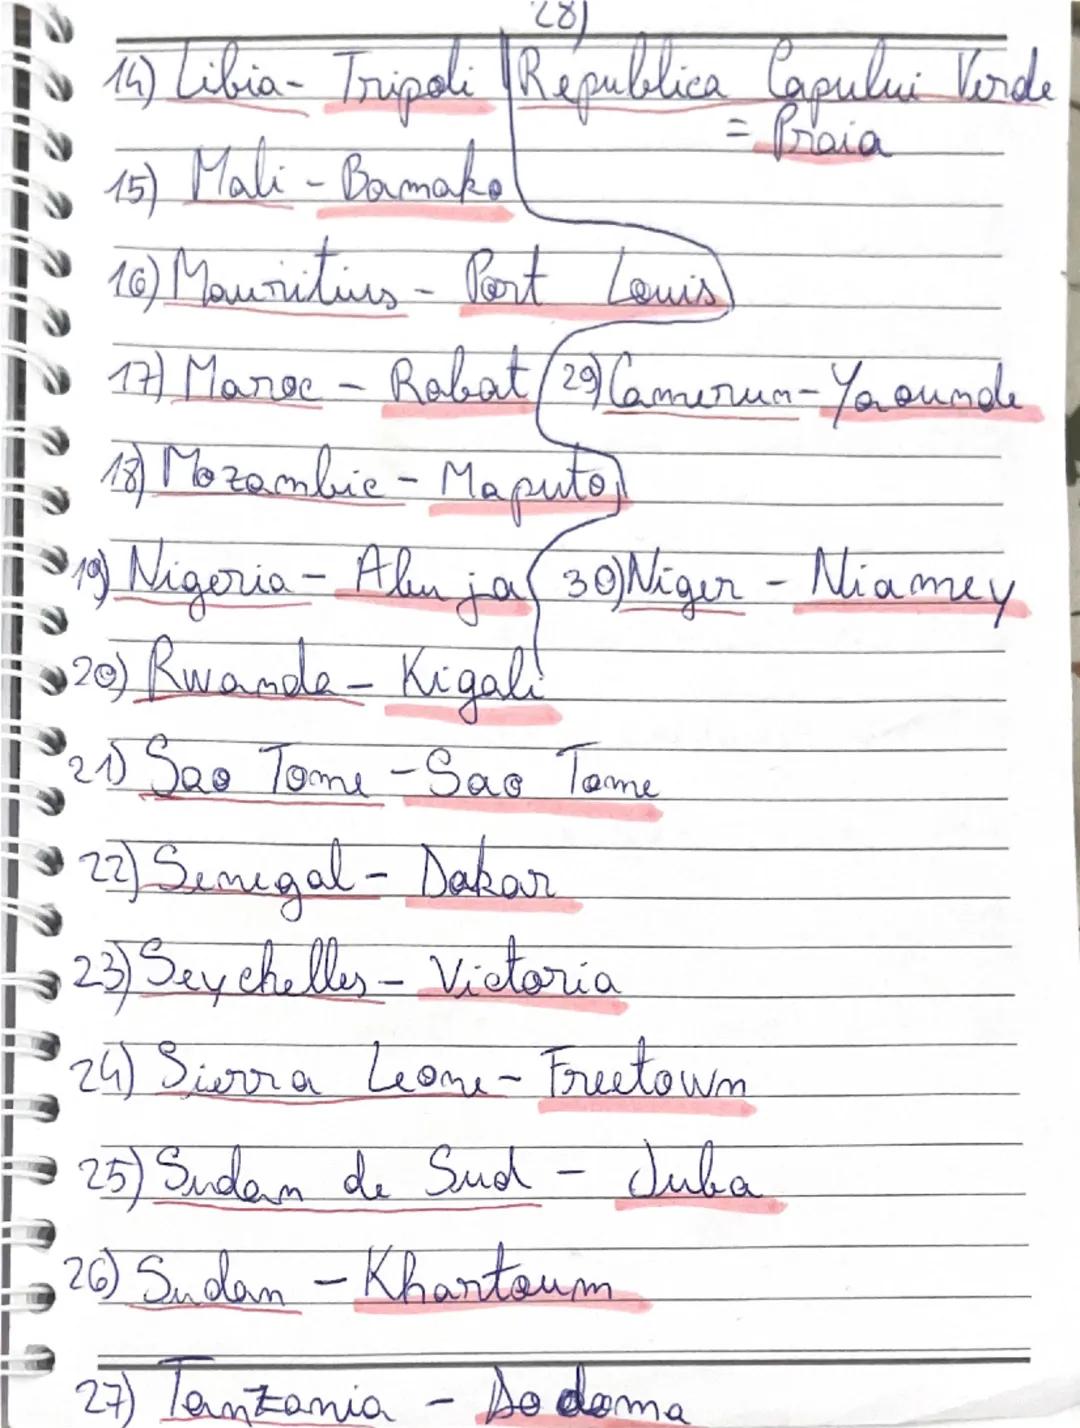 14) Libia - Tripoli
15) Mali - Bamako
16) Mauritius - Port Louis
17) Maroc - Rabat
18) Mozambic - Maputo
19) Nigeria - Abuja
20) Rwanda - Kigali
21) Sao Tome - Sao Tome
22) Senegal - Dakar
23) Seychelles - Victoria
24) Sierra Leone - Freetown
25) Sudan de Sud - Juba
26) Sudan - Khartoum
27) Tanzania - Dodoma
28)
Republica Capului Verde
= Praia
29) Camerun - Yaounde
30) Niger - Niamey